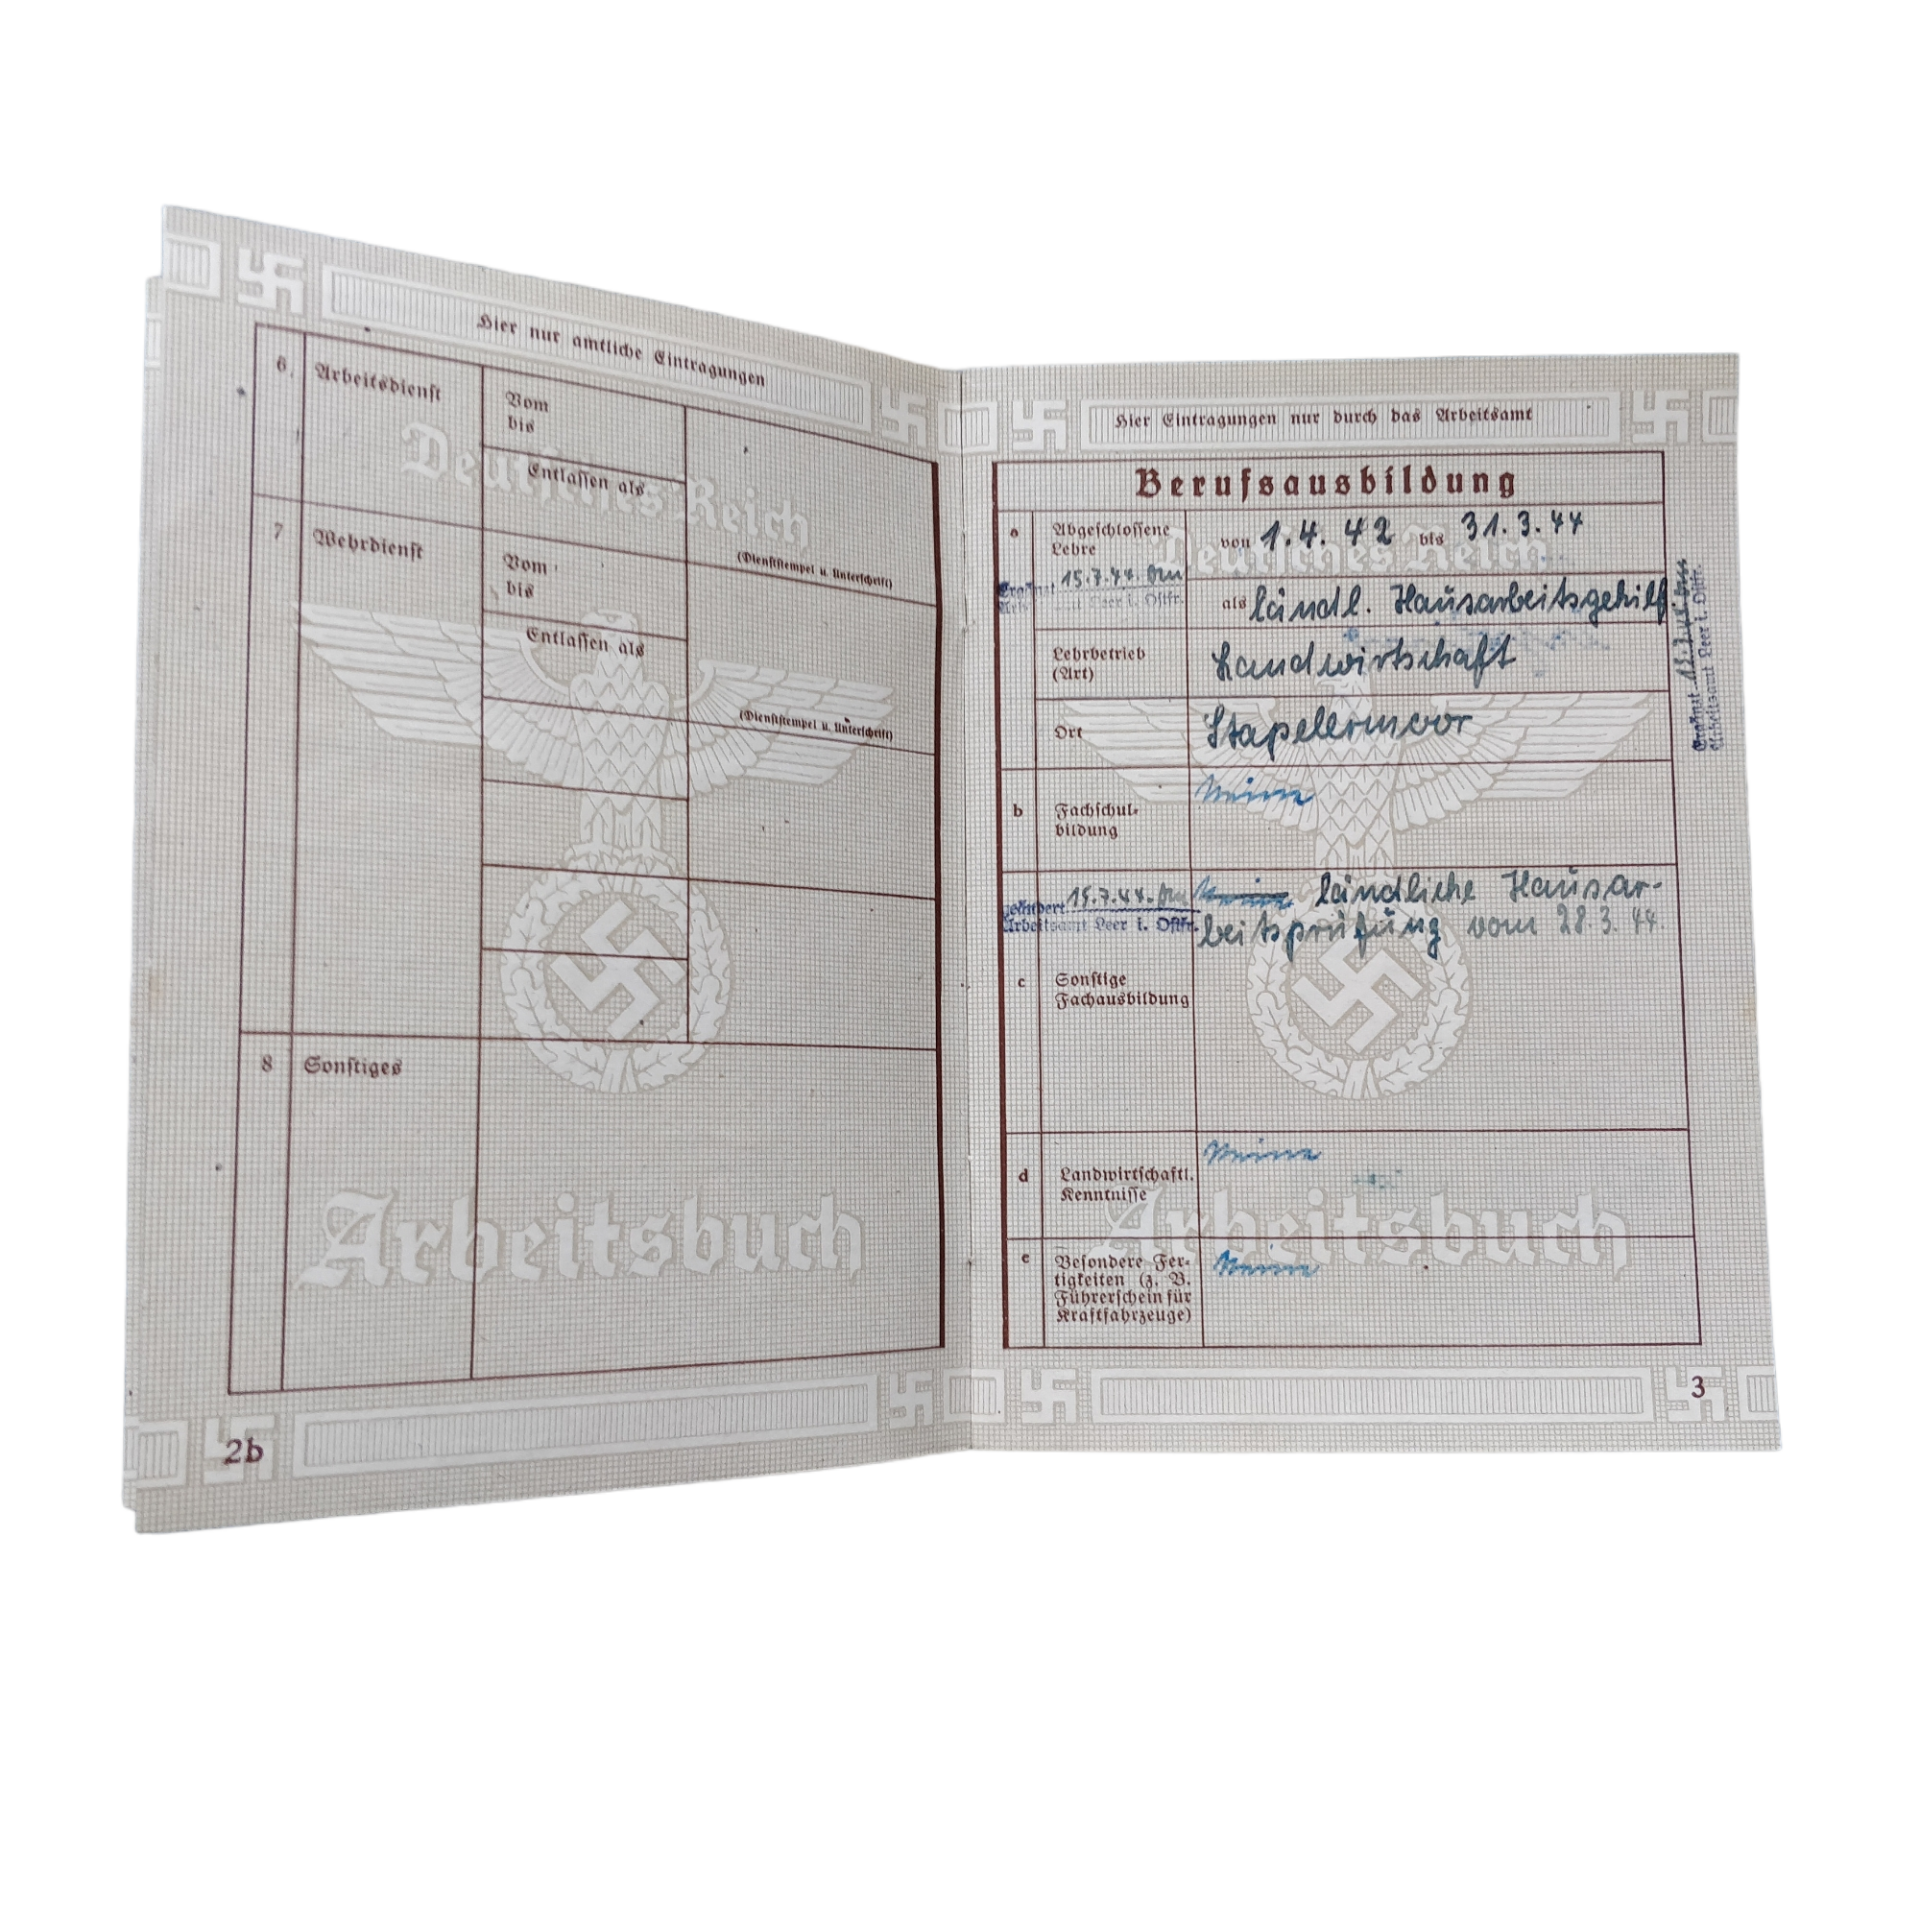 Hier nur amtliche Eintragungen
6. Arbeitsdienst
Vom
bis
Entlassen als
(Dienststempel u. Unterschrift)
7 Wehrdienst
Vom
bis
Entlassen als
(Dienststempel u. Unterschrift)
8 Sonstiges
Deutsches Reich
Arbeitsbuch
2b
Hier Eintragungen nur durch das Arbeitsamt
Berufsausbildung
a Abgeschlossene
Lehre
von 1.4.42 bis 31.3.44
Ergänzt 15.7.44.
Arbeitsamt Leer i. Ostfr.
als ländl. Hausarbeitsgehilf
Lehrbetrieb
(Art)
Landwirtschaft
Ort
Stapelermoor
Ergänzt 15.7.44
Arbeitsamt Leer i. Ostfr.
b Fachschul-
bildung
Keine
geändert 15.7.44.
Arbeitsamt Leer i. Ostfr.
Keine ländliche Hausar-
beitsprüfung vom 28.3.44.
c Sonstige
Fachausbildung
d Landwirtschaftl.
Kenntnisse
Keine
e Besondere Fer-
tigkeiten (z. B.
Führerschein für
Kraftfahrzeuge)
Keine
Deutsches Reich
Arbeitsbuch
3